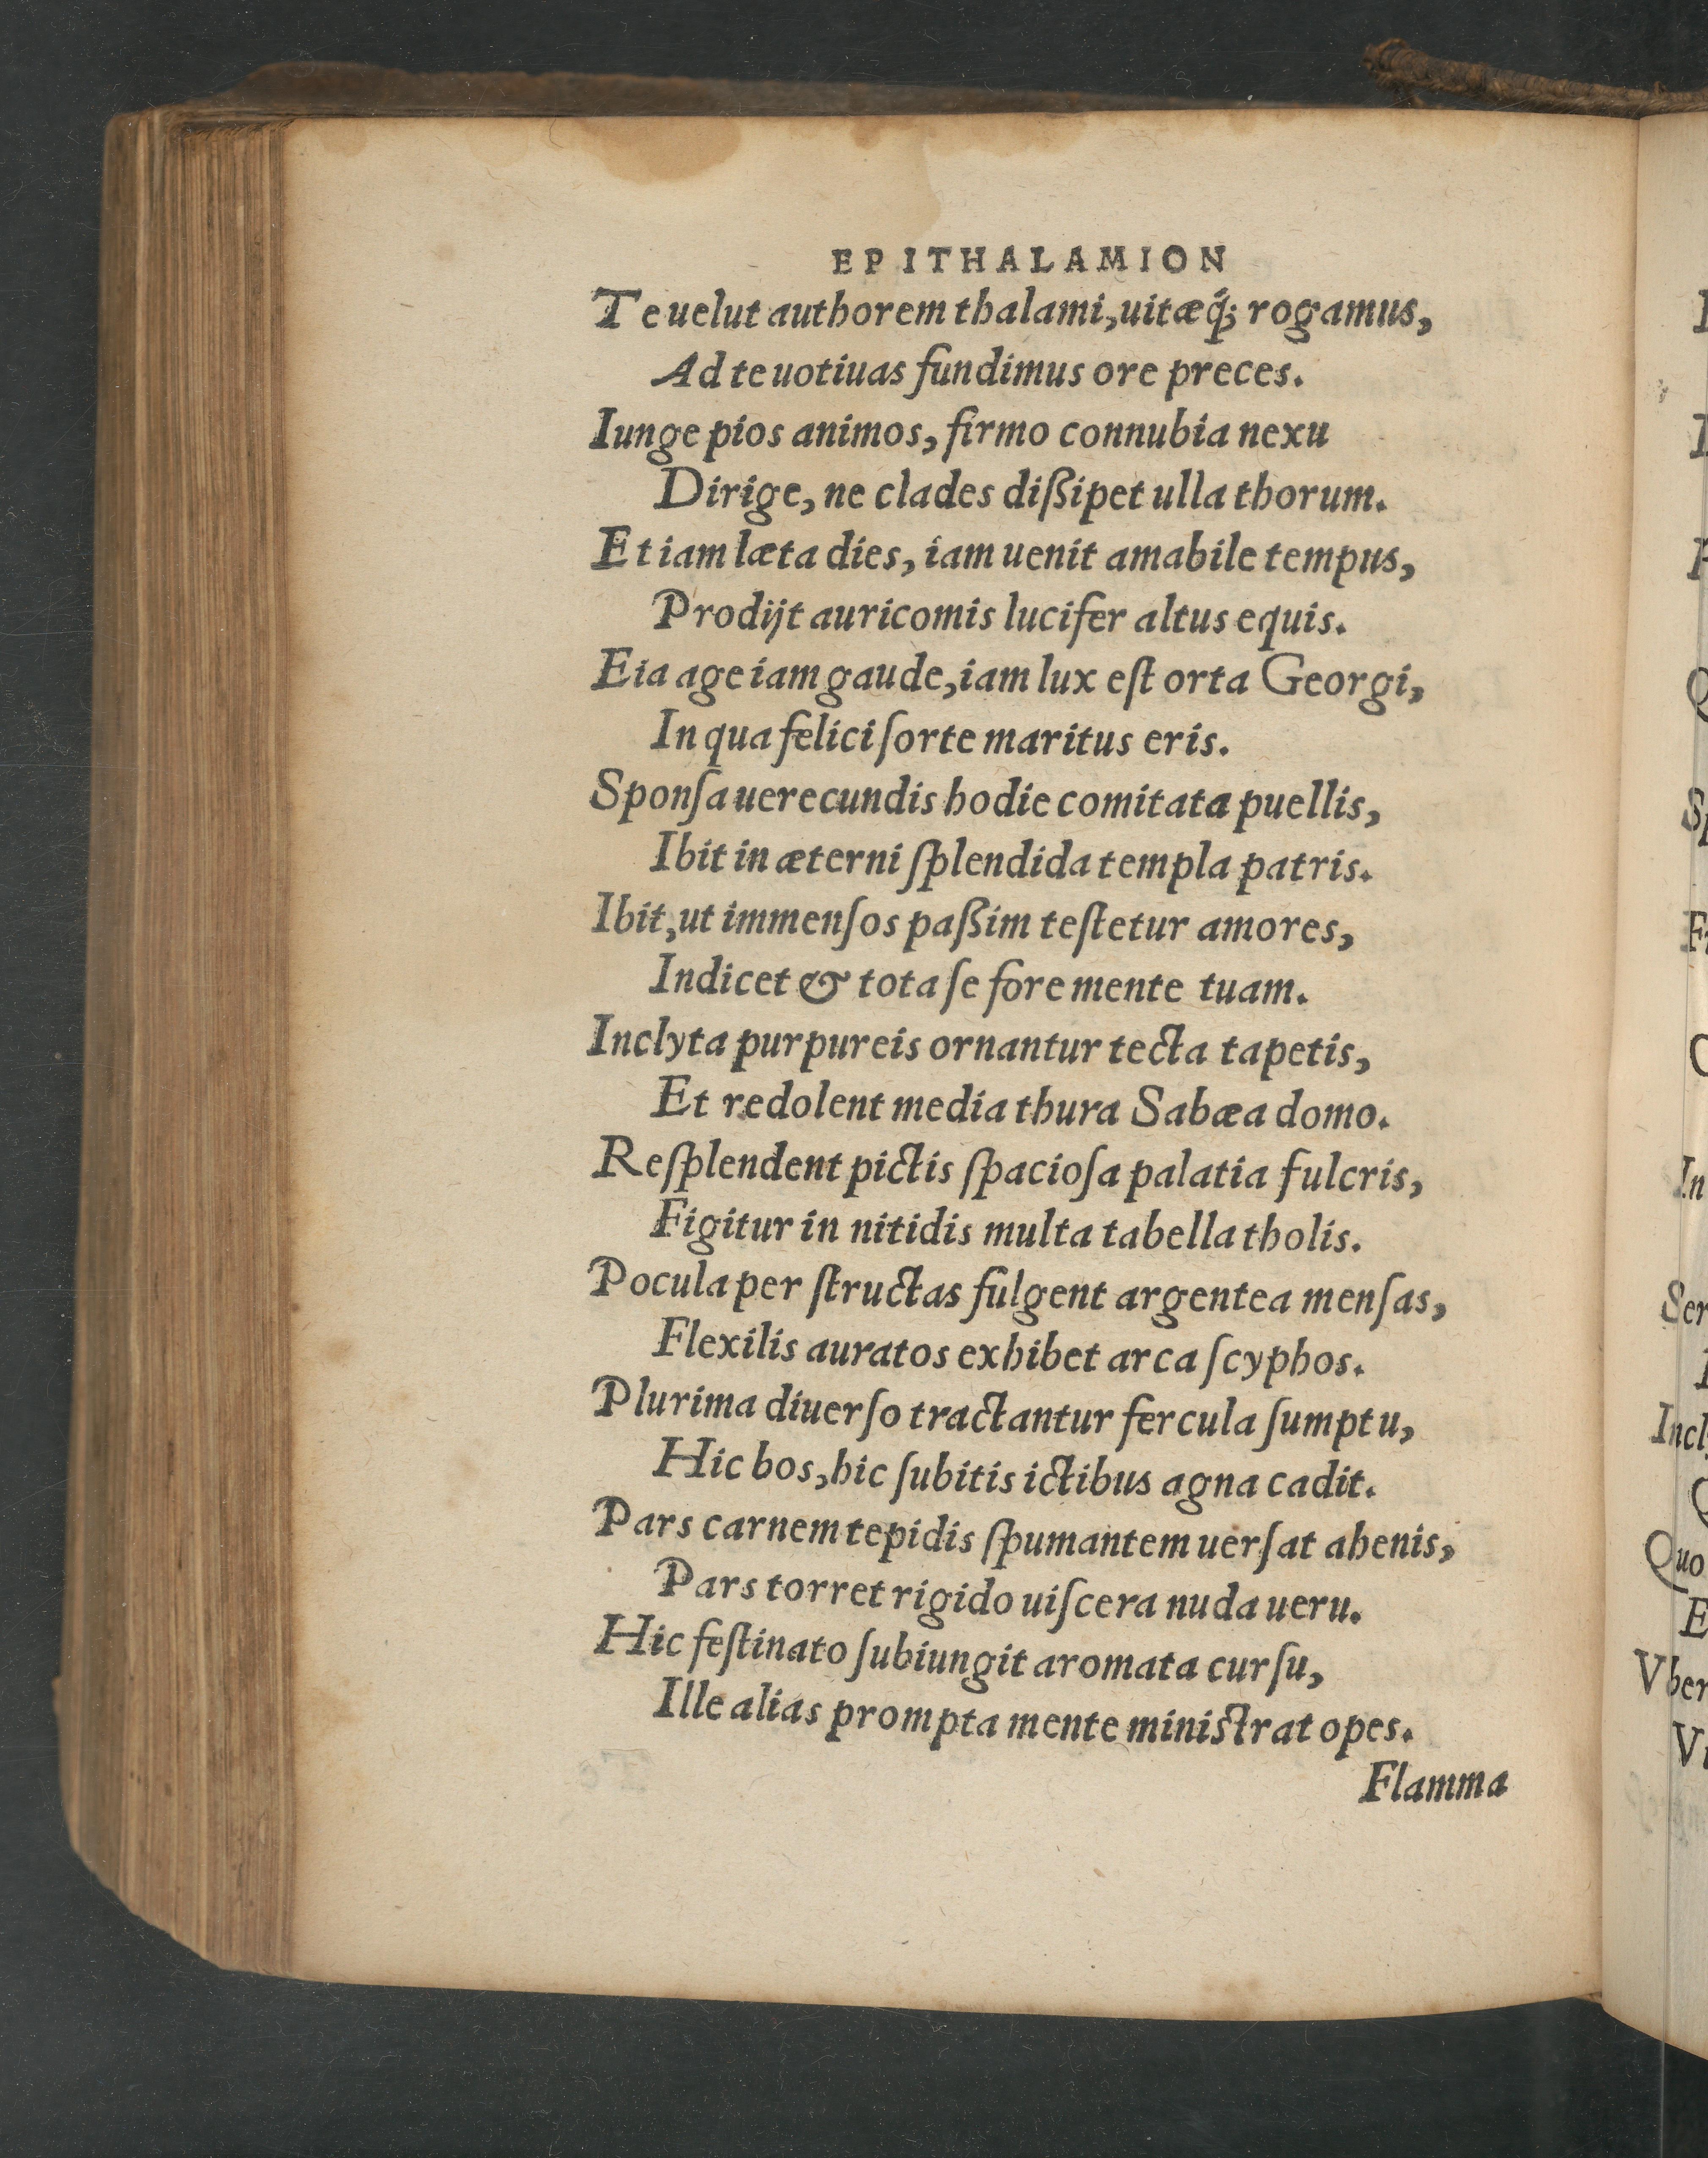 EPITHALAMION
Te uelut authorem thalami, uitæq́; rogamus,
Ad te uotiuas fundimus ore preces.
Iunge pios animos, firmo connubia nexu
Dirige, ne clades dißipet ulla thorum.
Et iam læta dies, iam uenit amabile tempus,
Prodijt auricomis lucifer altus equis.
Eia age iam gaude, iam lux eſt orta Georgi,
In qua felici ſorte maritus eris.
Sponſa uerecundis hodie comitata puellis,
Ibit in æterni ſplendida templa patris.
Ibit, ut immenſos paßim teſtetur amores,
Indicet & tota ſe fore mente tuam.
Inclyta purpureis ornantur tecta tapetis,
Et redolent media thura Sabæa domo.
Reſplendent pictis ſpacioſa palatia fulcris,
Figitur in nitidis multa tabella tholis.
Pocula per ſtructas fulgent argentea menſas,
Flexilis auratos exhibet arca ſcyphos.
Plurima diuerſo tractantur fercula ſumptu,
Hic bos, hic ſubitis ictibus agna cadit.
Pars carnem tepidis ſpumantem uerſat ahenis,
Pars torret rigido uiſcera nuda ueru.
Hic feſtinato ſubiungit aromata curſu,
Ille alias prompta mente miniſtrat opes.
Flamma